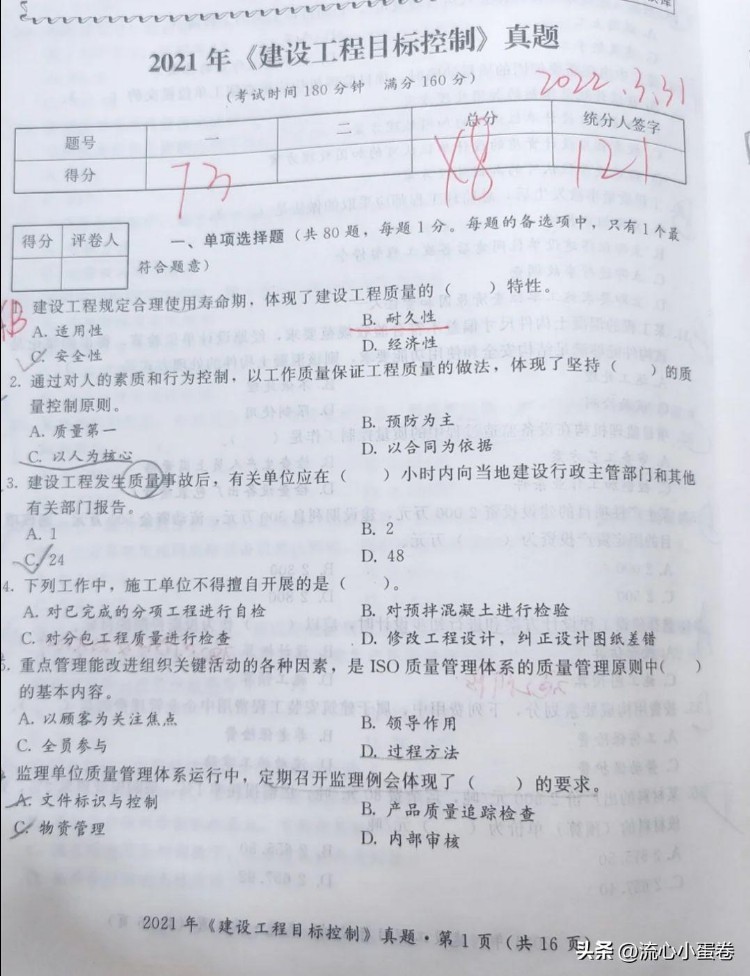 2021 年《建设工程目标控制》真题
(考试时间 180 分钟 满分 160 分)
2022.3.31
题号 一 二 总分 统分人签字
得分 73 48 121
得分 评卷人
一、单项选择题 (共 80 题，每题 1 分。每题的备选项中，只有 1 个最
符合题意)
建设工程规定合理使用寿命期，体现了建设工程质量的 ( ) 特性。
A. 适用性 B. 耐久性
C. 安全性 D. 经济性
2. 通过对人的素质和行为控制，以工作质量保证工程质量的做法，体现了坚持 ( ) 的质
量控制原则。
A. 质量第一 B. 预防为主
C. 以人为核心 D. 以合同为依据
3. 建设工程发生质量事故后，有关单位应在 ( ) 小时内向当地建设行政主管部门和其他
有关部门报告。
A. 1 B. 2
C. 24 D. 48
4. 下列工作中，施工单位不得擅自开展的是 ( )。
A. 对已完成的分项工程进行自检 B. 对预拌混凝土进行检验
C. 对分包工程质量进行检查 D. 修改工程设计，纠正设计图纸差错
5. 重点管理能改进组织关键活动的各种因素，是 ISO 质量管理体系的质量管理原则中( )
的基本内容。
A. 以顾客为关注焦点 B. 领导作用
C. 全员参与 D. 过程方法
监理单位质量管理体系运行中，定期召开监理例会体现了 ( ) 的要求。
A. 文件标识与控制 B. 产品质量追踪检查
C. 物资管理 D. 内部审核
2021 年《建设工程目标控制》真题·第 1 页 (共 16 页)
头条 @流心小蛋卷